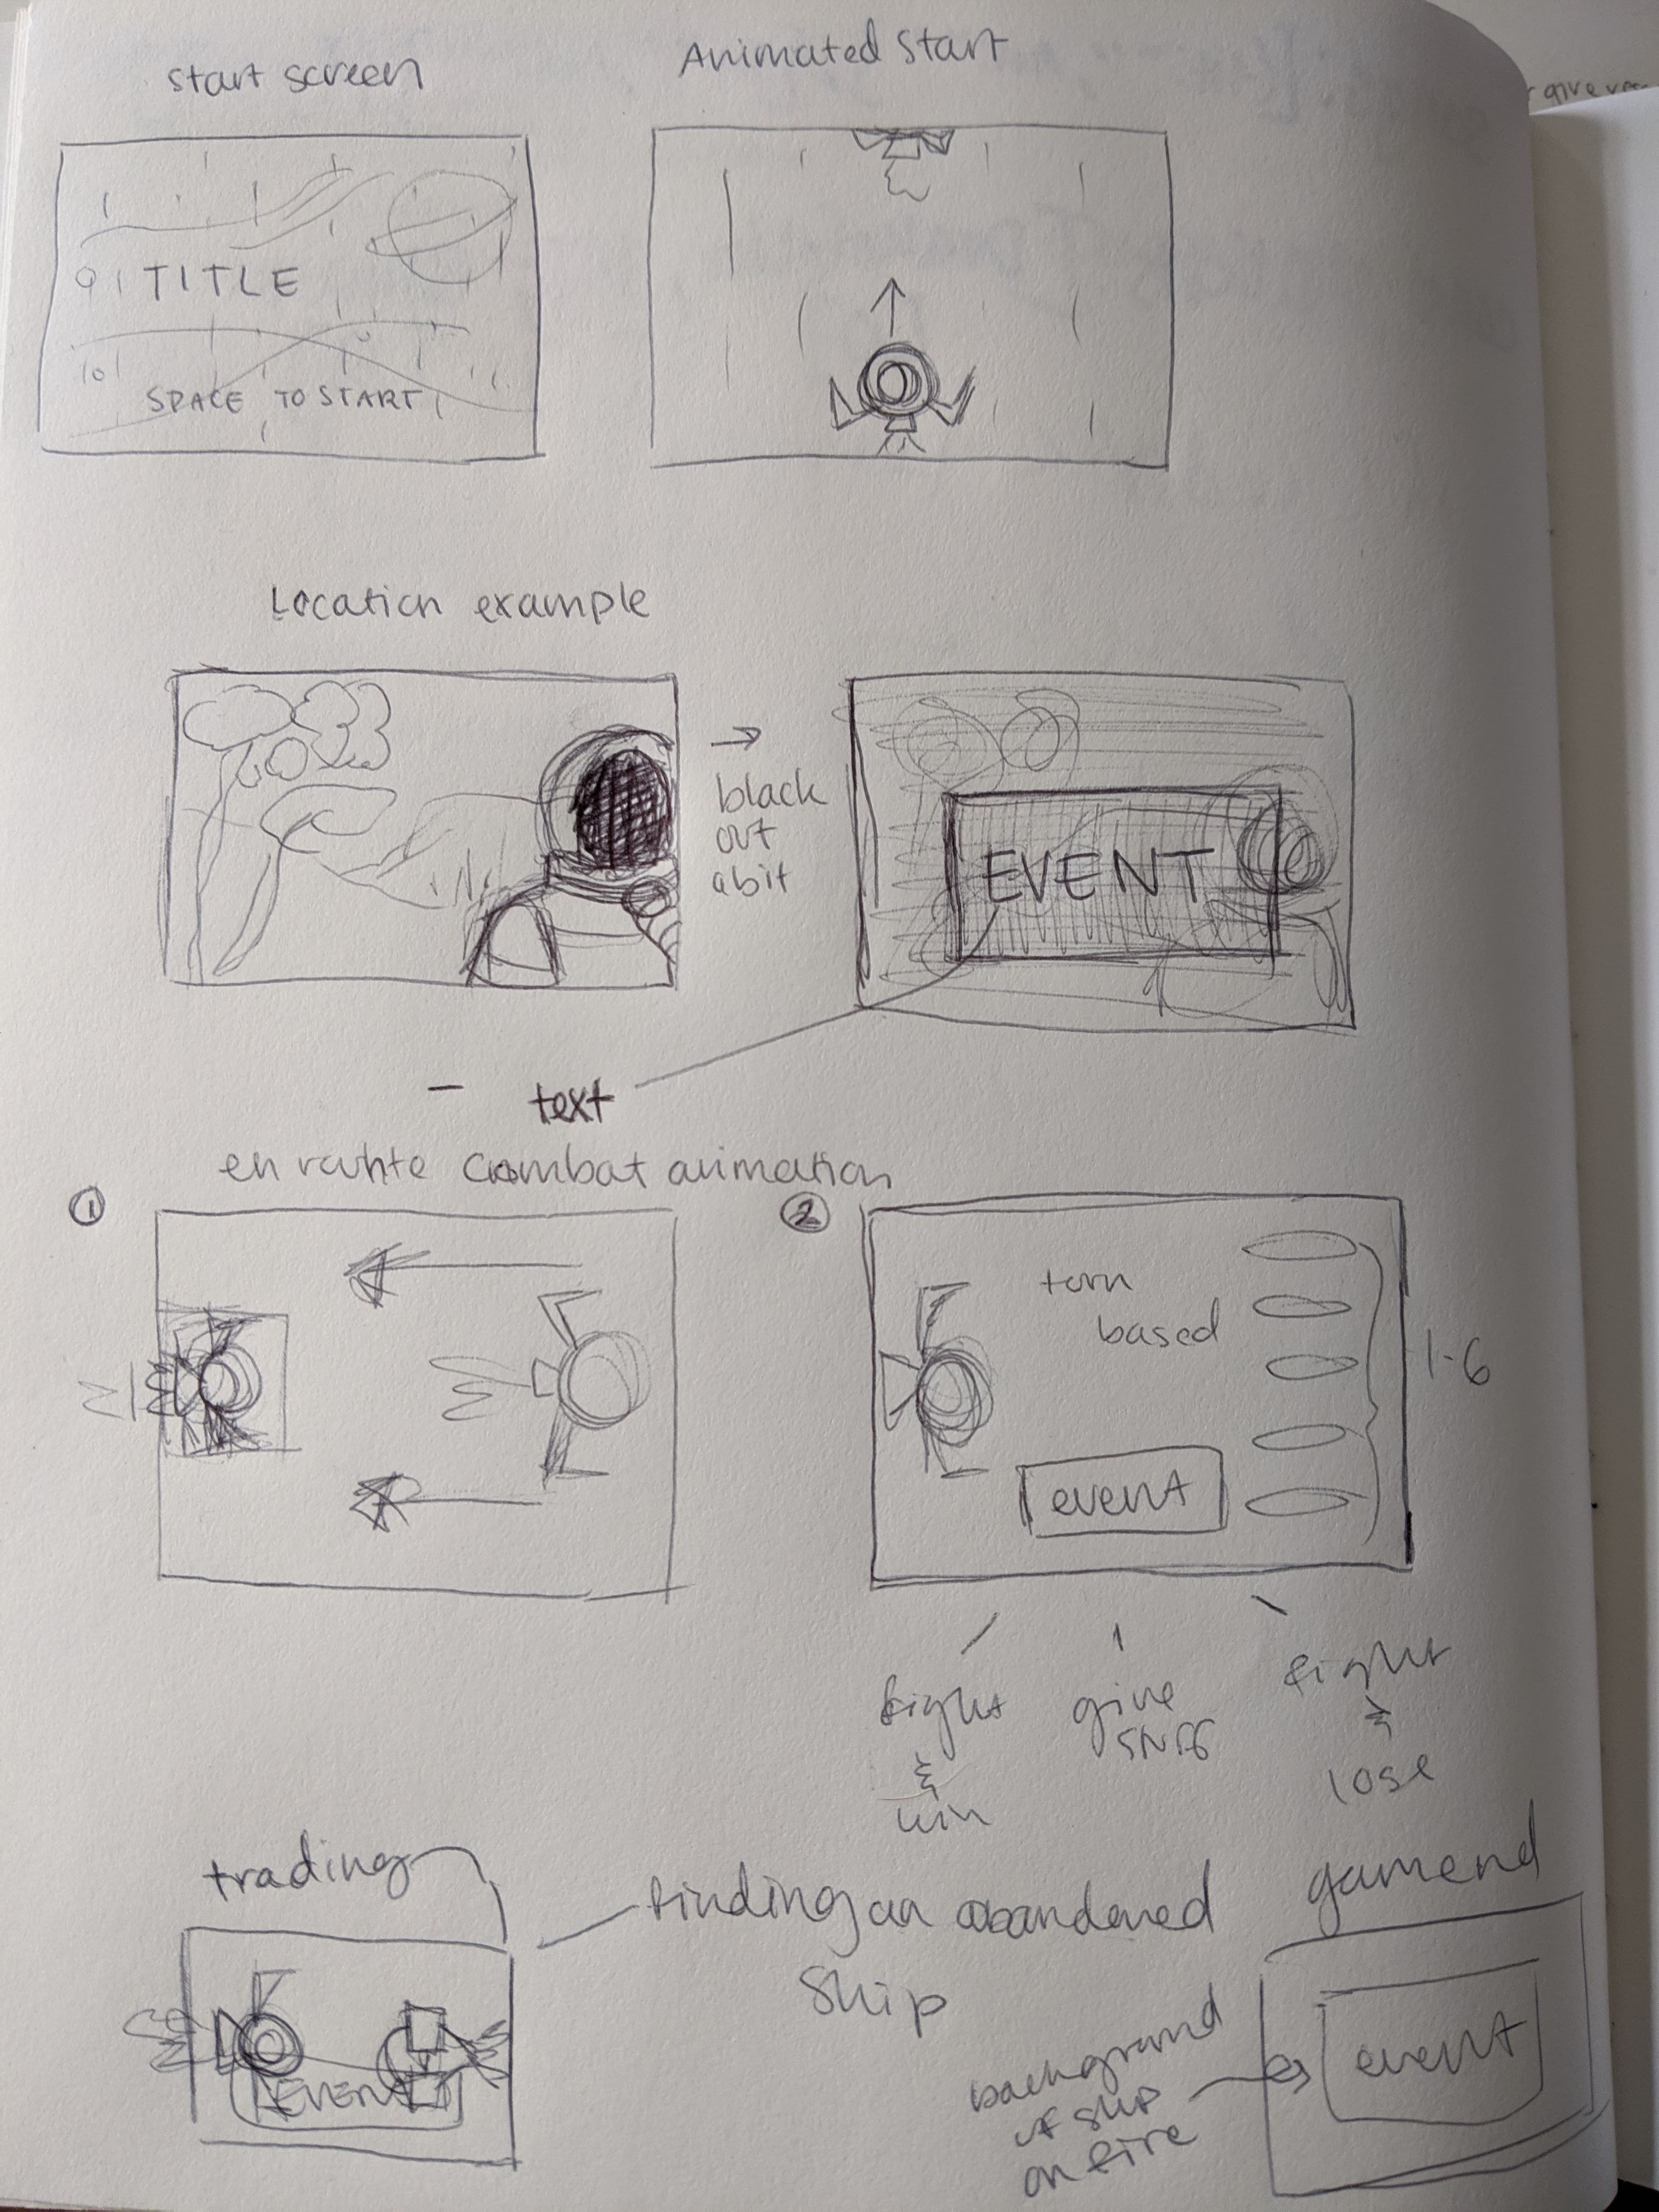 start screen
Animated start
TITLE
SPACE TO START
Location example
black
out
abit
EVENT
- text
en rounte combat animation
1
2
turn
based
1-6
event
fight
&
win
give
fight
&
lose
trading
finding an abandoned
ship
gamend
EVENT
background
of ship
on fire
event